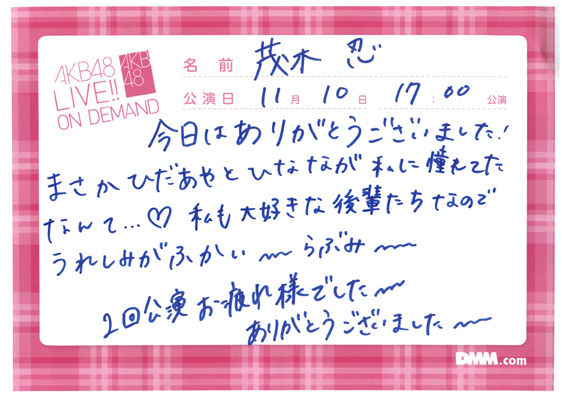 AKB48
LIVE!!
ON DEMAND
AKB
48
名前 茂木 忍
公演日 11月 10日 17:00 公演
今日はありがとうございました!
まさかひだあやとひななが私に憧れてた
なんて…♡ 私も大好きな後輩たちなので
うれしみがふかい〰 らぶみ〰
2回公演お疲れ様でした〰
ありがとうございました〰
DMM.com